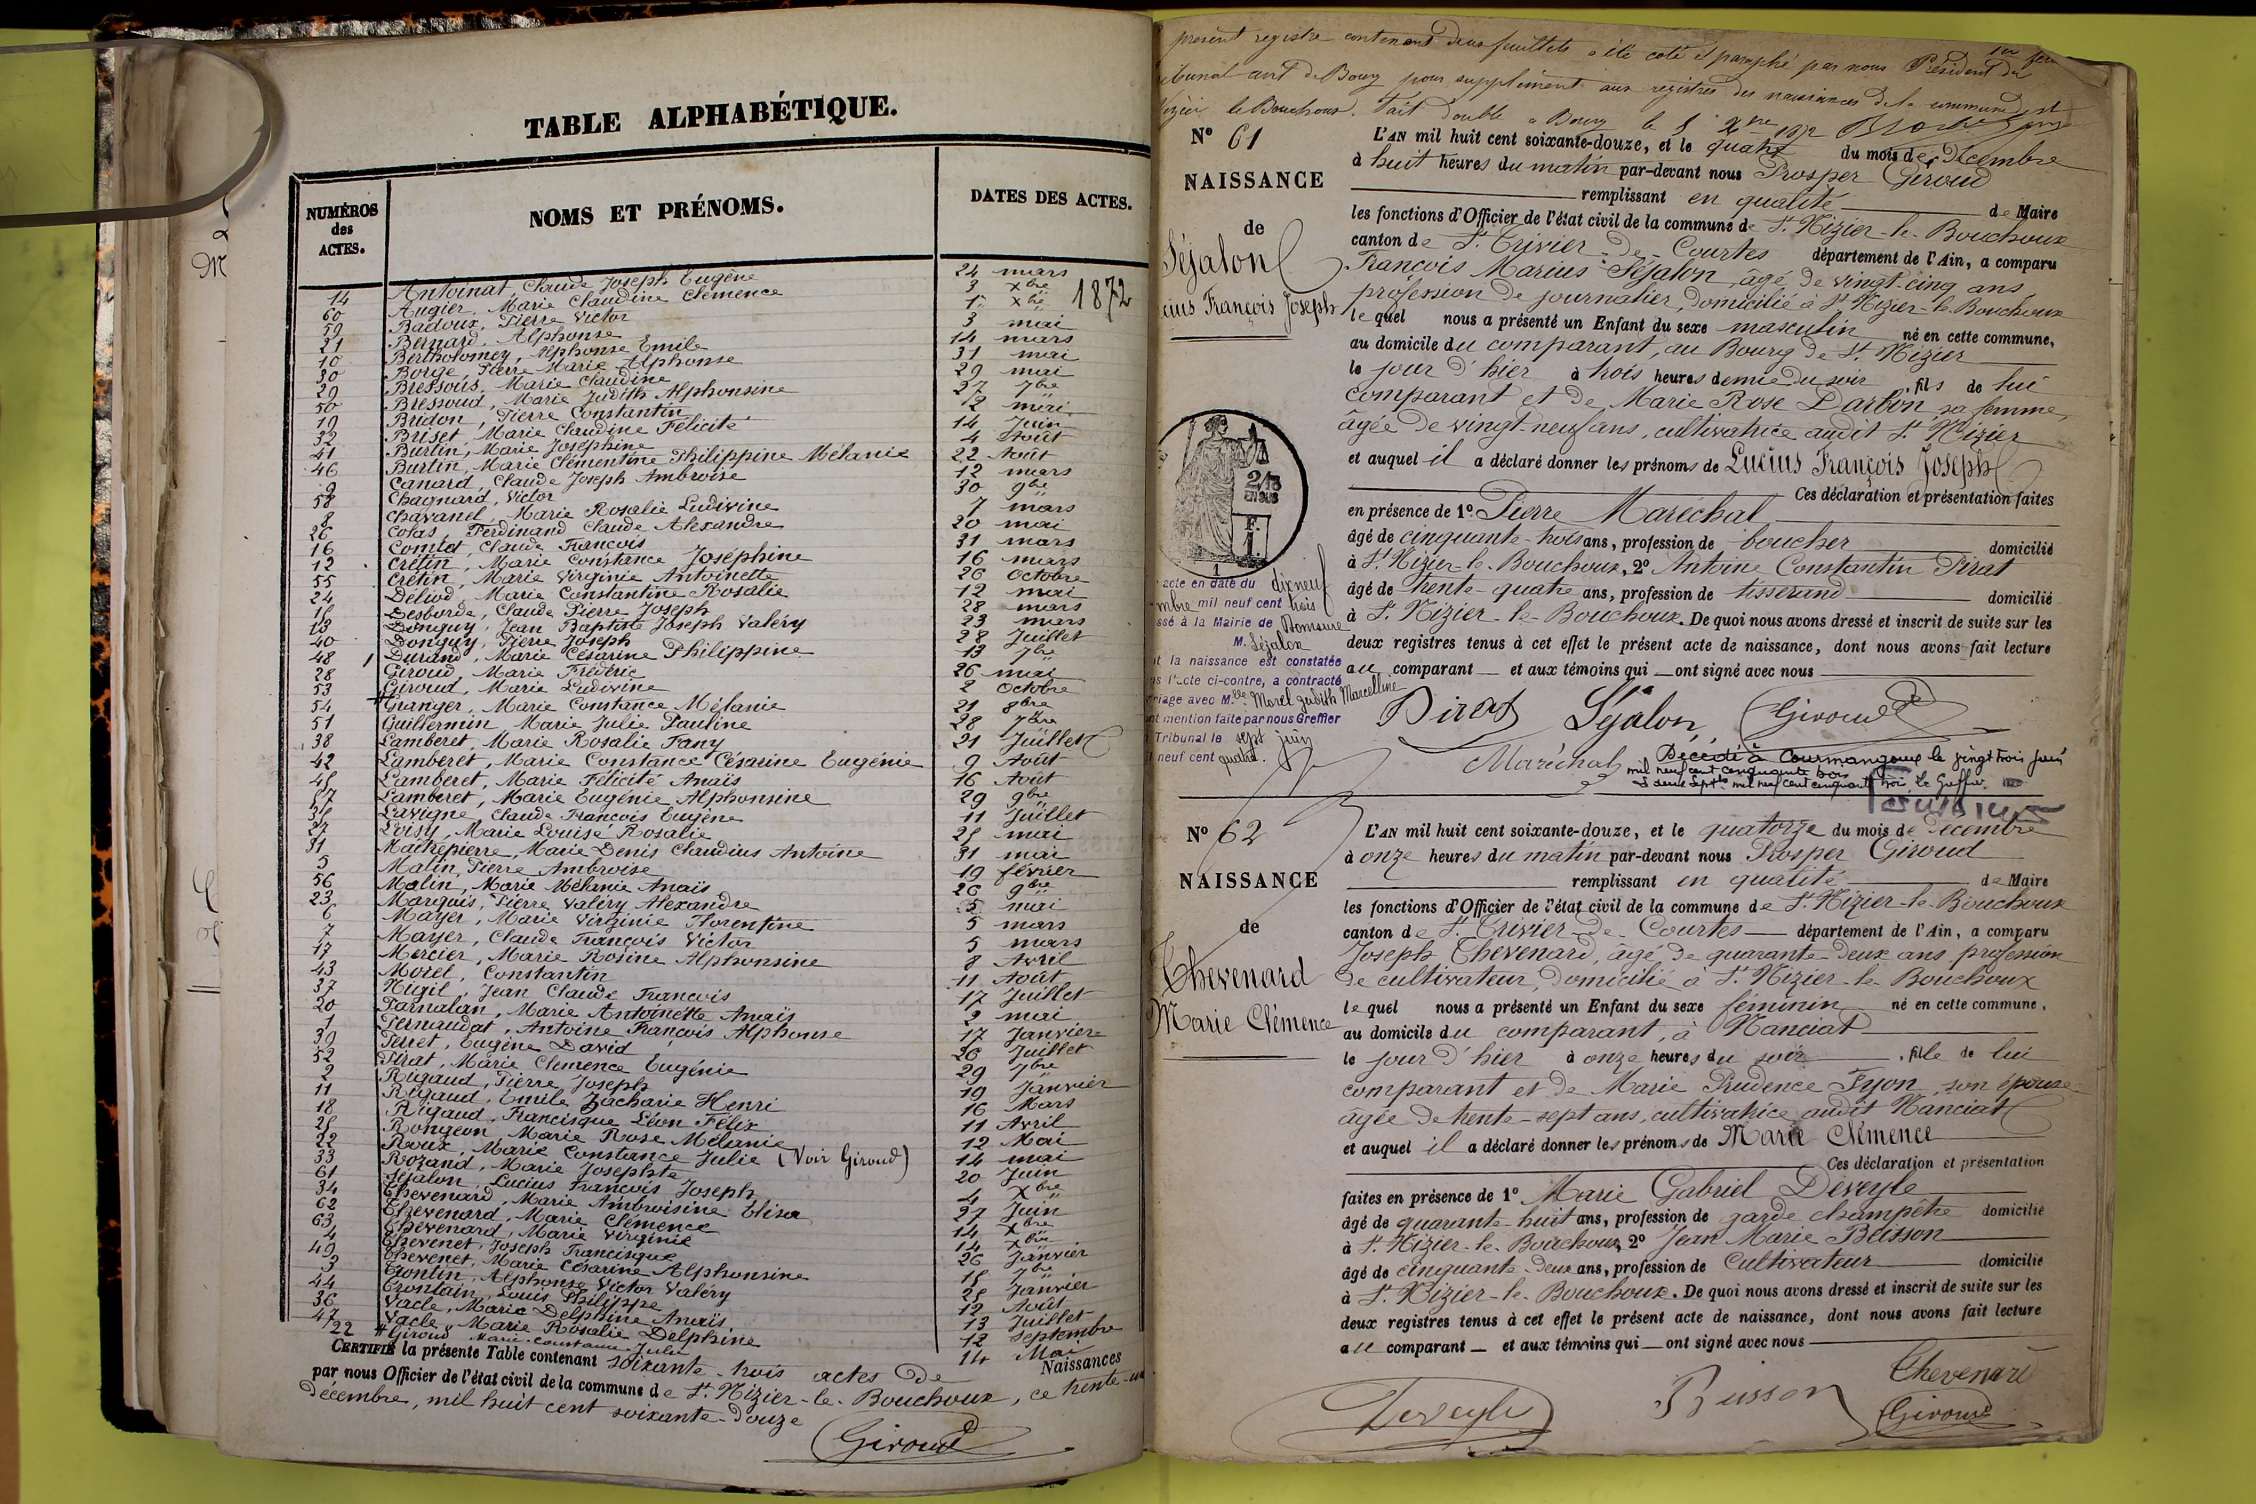 TABLE ALPHABÉTIQUE.
NUMÉROS des ACTES.
NOMS ET PRÉNOMS.
DATES DES ACTES.
1872
14 Antoinat, Claude Joseph Eugène 24 mars
60 Augier, Marie Claudine Clémence 3 xbre
59 Badoux, Pierre Victor 1r xbre
21 Bernard, Alphonse 3 mai
10 Bertholomey, Alphonse Emile 14 mars
30 Borge, Pierre Marie Alphonse 31 mai
29 Bressous, Marie Claudine 29 mai
50 Bressoud, Marie Judith Alphonsine 27 7bre
19 Bridon, Pierre Constantin 2 mai
32 Briset, Marie Claudine Félicité 14 Juin
41 Burtin, Marie Joséphine 4 Août
46 Burtin, Marie Clémentine Philippine Mélanie 22 Août
9 Canard, Claude Joseph Ambroise 12 mars
58 Chagnard, Victor 30 9bre
8 Chavanel, Marie Rosalie Ludivine 7 mars
26 Colas, Ferdinand Claude Alexandre 20 mai
16 Comtet, Claude François 31 mars
12 Crétin, Marie Constance Joséphine 16 mars
55 Crétin, Marie Virginie Antoinette 26 Octobre
24 Déliod, Marie Constantine Rosalie 12 mai
15 Desborde, Claude Pierre Joseph 28 mars
13 Donguy, Jean Baptiste Joseph Valéry 23 mars
40 Donguy, Pierre Joseph 28 Juillet
48 Durand, Marie Césarine Philippine 13 7bre
28 Giroud, Marie Frédéric 26 mai
53 Giroud, Marie Ludivine 2 Octobre
54 Granger, Marie Constance Mélanie 21 8bre
51 Guillermin Marie Julie Pauline 28 7bre
38 Lamberet, Marie Rosalie Fany 21 Juillet
42 Lamberet, Marie Constance Césarine Eugénie 9 Août
45 Lamberet, Marie Félicité Anaïs 16 Août
57 Lamberet, Marie Eugénie Alphonsine 29 9bre
35 Lavigne, Claude François Eugène 11 Juillet
27 Loisy, Marie Louise Rosalie 25 mai
31 Maîtrepierre, Marie Denis Claudius Antoine 31 mai
5 Malin, Pierre Ambroise 19 février
56 Malin, Marie Mélanie Anaïs 26 9bre
23 Marquis, Pierre Valéry Alexandre 5 mai
6 Mayer, Marie Virginie Florentine 5 mars
7 Mayer, Claude François Victor 5 mars
17 Mercier, Marie Rosine Alphonsine 8 Avril
43 Morel, Constantin 11 Août
37 Nigil, Jean Claude François 17 Juillet
20 Parnalan, Marie Antoinette Anaïs 2 mai
1 Pernaudat, Antoine François Alphonse 17 Janvier
39 Perret, Eugène David 26 Juillet
52 Pirat, Marie Clémence Eugénie 29 7bre
2 Rigaud, Pierre Joseph 19 Janvier
11 Rigaud, Emile Zacharie Henri 16 Mars
18 Rigaud, Francisque Léon Félix 11 Avril
25 Rongeon, Marie Rose Mélanie 12 Mai
22 Roux, Marie Constance Julie (Voir Giroud) 14 mai
33 Rozand, Marie Josephte 20 Juin
61 Séjalon, Lucius François Joseph 4 xbre
34 Thevenard, Marie Ambroisine Elisa 27 Juin
62 Thevenard, Marie Clémence 14 xbre
63 Thevenard, Marie Virginie 14 xbre
4 Thevenet, Joseph Francisque 26 Janvier
49 Thevenet, Marie Césarine Alphonsine 15 7bre
3 Trontin, Alphonse Victor Valéry 25 Janvier
44 Trontain, Louis Philippe 12 Août
36 Vacle, Marie Delphine Anaïs 13 Juillet
47 Vacle, Marie Rosalie Delphine 12 Septembre
22 # Giroud Marie-Constance-Julie 14 Mai
CERTIFIÉ la présente Table contenant soixante-trois actes de Naissances
par nous Officier de l'état civil de la commune de St Nizier-le-Bouchoux, ce trente-un
décembre, mil huit cent soixante-douze
Giroud
présent registre contenant deux feuillets a été coté et paraphé par nous Président du
tribunal civil de Bourg pour supplément aux registres des naissances de la commune de St
Nizier le Bouchoux. Fait double à Bourg le 5 xbre 1872
N° 61
NAISSANCE
de
Séjalon
cius François Joseph
L'AN mil huit cent soixante-douze, et le quatre du mois de Décembre
à huit heures du matin par-devant nous Prosper Giroud
remplissant en qualité de Maire
les fonctions d'Officier de l'état civil de la commune de St Nizier-le-Bouchoux
canton de St Trivier-de-Courtes département de l'Ain, a comparu
François Marius Séjalon, âgé de vingt-cinq ans,
profession de journalier, domicilié à St Nizier-le-Bouchoux
lequel nous a présenté un Enfant du sexe masculin né en cette commune,
au domicile du comparant, au Bourg de St Nizier
le jour d'hier à trois heures demie du soir, fils de lui
comparant et de Marie Rose Darbon sa femme,
âgée de vingt-neuf ans, cultivatrice audit St Nizier
et auquel il a déclaré donner les prénoms de Lucius François Joseph
Ces déclaration et présentation faites
en présence de 1° Pierre Maréchal
âgé de cinquante-trois ans, profession de boucher domicilié
à St Nizier-le-Bouchoux, 2° Antoine Constantin Pirat
âgé de trente-quatre ans, profession de tisserand domicilié
à St Nizier-le-Bouchoux. De quoi nous avons dressé et inscrit de suite sur les
deux registres tenus à cet effet le présent acte de naissance, dont nous avons fait lecture
au comparant et aux témoins qui ont signé avec nous
Pirat Séjalon Giroud
Maréchal
Décédé à Courmangoux le vingt trois juin
mil neuf cent cinquante trois
Le deux Septbre mil neuf cent cinquante trois, Le Greffier
2/10
EN SUS
F.
1
acte en date du dix neuf
mbre mil neuf cent trois
ssé à la Mairie de Domsure
M. Séjalon
nt la naissance est constatée
ns l'acte ci-contre, a contracté
riage avec Melle Morel Judith Marcelline
nt mention faite par nous Greffier
Tribunal le sept juin
il neuf cent quatre.
N° 62
NAISSANCE
de
Thevenard
Marie Clémence
L'AN mil huit cent soixante-douze, et le quatorze du mois de Décembre
à onze heures du matin par-devant nous Prosper Giroud
remplissant en qualité de Maire
les fonctions d'Officier de l'état civil de la commune de St Nizier-le-Bouchoux
canton de St Trivier-de-Courtes département de l'Ain, a comparu
Joseph Thevenard, âgé de quarante-deux ans profession
de cultivateur, domicilié à St Nizier-le-Bouchoux
lequel nous a présenté un Enfant du sexe féminin né en cette commune,
au domicile du comparant, à Nanciat
le jour d'hier à onze heures du soir, fille de lui
comparant et de Marie Prudence Fyon, son épouse
âgée de trente-sept ans, cultivatrice audit Nanciat
et auquel il a déclaré donner les prénoms de Marie Clémence
Ces déclaration et présentation
faites en présence de 1° Marie Gabriel Deveyle
âgé de quarante-huit ans, profession de garde champêtre domicilié
à St Nizier-le-Bouchoux, 2° Jean Marie Buisson
âgé de cinquante-deux ans, profession de Cultivateur domicilié
à St Nizier-le-Bouchoux. De quoi nous avons dressé et inscrit de suite sur les
deux registres tenus à cet effet le présent acte de naissance, dont nous avons fait lecture
au comparant et aux témoins qui ont signé avec nous
Thevenard
Deveyle Buisson Giroud